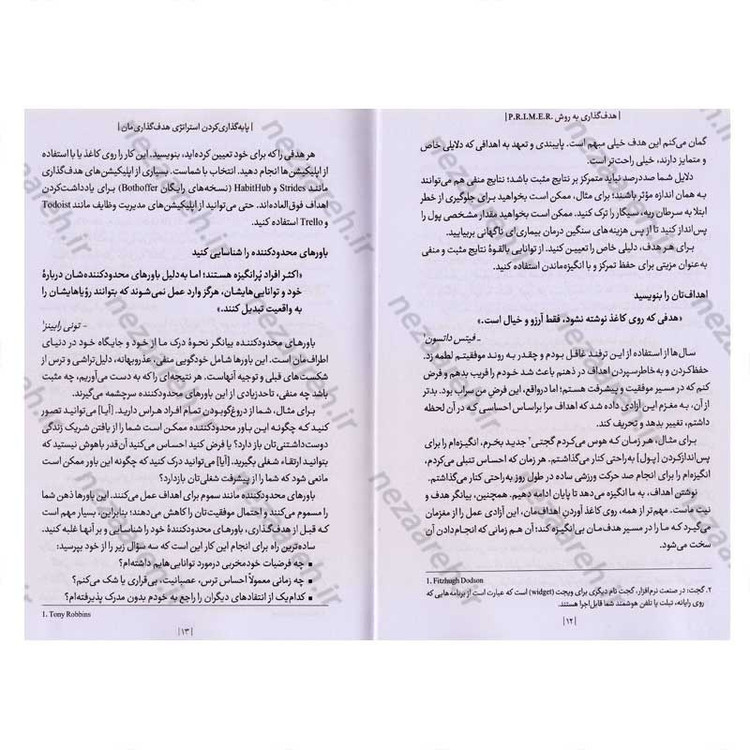 | هدف‌گذاری به روش P.R.I.M.E.R. |
گمان می‌کنم این هدف خیلی مبهم است. پایبندی و تعهد به اهدافی که دلایلی خاص
و متمایز دارند، خیلی راحت‌تر است.
دلایل شما صددرصد نباید متمرکز بر نتایج مثبت باشد؛ نتایج منفی هم می‌توانند
به همان اندازه مؤثر باشند؛ برای مثال، ممکن است بخواهید برای جلوگیری از خطر
ابتلا به سرطان ریه، سیگار را ترک کنید. ممکن است بخواهید مقدار مشخصی پول را
پس‌انداز کنید تا از پس هزینه‌های سنگین درمان بیماری‌ای ناگهانی بربیایید.
برای هر هدف، دلایلی خاص را تعیین کنید. از توانایی بالقوهٔ نتایج مثبت و منفی
به‌عنوان مزیتی برای حفظ تمرکز و با انگیزه‌ماندن استفاده کنید.
اهداف‌تان را بنویسید
«هدفی که روی کاغذ نوشته نشود، فقط آرزو و خیال است.»
ـ فیتس داتسون¹
سال‌ها از استفاده از این ترفند غافل بودم و چقدر به روند موفقیتم لطمه زد.
حفظ‌کردن و به خاطرسپردن اهداف در ذهنم باعث شد خودم را فریب بدهم و فرض
کنم که در مسیر موفقیت و پیشرفت هستم؛ اما درواقع، این فرضِ من سراب بود. بدتر
از آن، به مغزم این آزادی داده شد که اهداف مرا براساس احساسی که در آن لحظه
داشتم، تغییر بدهد و تحریف کند.
برای مثال، هر زمان که هوس می‌کردم گجتی² جدید بخرم، انگیزه‌ام را برای
پس‌اندازکردن [پول] به‌راحتی کنار می‌گذاشتم. هر زمان که احساس تنبلی می‌کردم،
انگیزه‌ام را برای انجام صد حرکت ورزشی ساده در طول روز به‌راحتی کنار می‌گذاشتم.
نوشتن اهداف، به ما انگیزه می‌دهد تا پایان ادامه دهیم. همچنین، بیانگر هدف و
نیت ماست. مهم‌تر از همه، روی کاغذ آوردن اهداف‌مان، این آزادی عمل را از مغزمان
می‌گیرد که ما را در مسیر هدف‌مان بی‌انگیزه کند؛ آن هم زمانی که انجام‌دادن آن
سخت می‌شود.
1. Fitzhugh Dodson
۲. گجت: در صنعت نرم‌افزار، گجت نام دیگری برای ویجت (widget) است که عبارت است از برنامه‌هایی که
روی رایانه، تبلت یا تلفن هوشمند شما قابل‌اجرا هستند.
| ۱۲ |
| پایه‌گذاری‌کردن استراتژی هدف‌گذاری‌مان |
هر هدفی را که برای خود تعیین کرده‌اید، بنویسید. این کار را روی کاغذ یا با استفاده
از اپلیکیشن‌ها انجام دهید. انتخاب با شماست. بسیاری از اپلیکیشن‌های هدف‌گذاری
مانند Strides و HabitHub (نسخه‌های رایگان Bothoffer) برای یادداشت‌کردن
اهداف فوق‌العاده‌اند. حتی می‌توانید از اپلیکیشن‌های مدیریت وظایف مانند Todoist
و Trello استفاده کنید.
باورهای محدودکننده را شناسایی کنید
«اکثر افراد پُرانگیزه هستند؛ اما به‌دلیل باورهای محدودکننده‌شان دربارهٔ
خود و توانایی‌هایشان، هرگز وارد عمل نمی‌شوند که بتوانند رؤیاهایشان را
به واقعیت تبدیل کنند.»
ـ تونی رابینز¹
باورهای محدودکننده بیانگر نحوهٔ درک ما از خود و جایگاه خود در دنیای
اطراف‌مان است. این باورها شامل خودگویی منفی، عذروبهانه، دلیل‌تراشی و ترس از
شکست‌های قبلی و توجیه آنهاست. هر نتیجه‌ای را که به دست می‌آوریم، چه مثبت
باشد چه منفی، تاحدزیادی از این باورهای محدودکننده سرچشمه می‌گیرند.
برای مثال، شما از دروغ‌گوبودن تمام افراد هراس دارید. [آیا] می‌توانید تصور
کنید که چگونه این باور محدودکننده ممکن است شما را از یافتن شریک زندگی
دوست‌داشتنی‌تان باز دارد؟ یا فرض کنید احساس می‌کنید آن‌قدر باهوش نیستید که
بتوانید ارتقاء شغلی بگیرید. [آیا] می‌توانید درک کنید که چگونه این باور ممکن است
مانعی شود که شما را از پیشرفت شغلی‌تان بازدارد؟
باورهای محدودکننده مانند سموم برای اهداف عمل می‌کنند. این باورها ذهن شما
را مسموم می‌کنند و احتمال موفقیت‌تان را کاهش می‌دهند؛ بنابراین، بسیار مهم است
که قبل از هدف‌گذاری، باورهای محدودکنندهٔ خود را شناسایی و بر آنها غلبه کنید.
ساده‌ترین راه برای انجام این کار این است که سه سؤال زیر را از خود بپرسید:
▪ چه فرضیات خودمخربی درمورد توانایی‌هایم داشته‌ام؟
▪ چه زمانی معمولاً احساس ترس، عصبانیت، بی‌قراری یا شک می‌کنم؟
▪ کدام‌یک از انتقادهای دیگران را راجع به خودم بدون مدرک پذیرفته‌ام؟
1. Tony Robbins
| ۱۳ |
nezaareh.ir